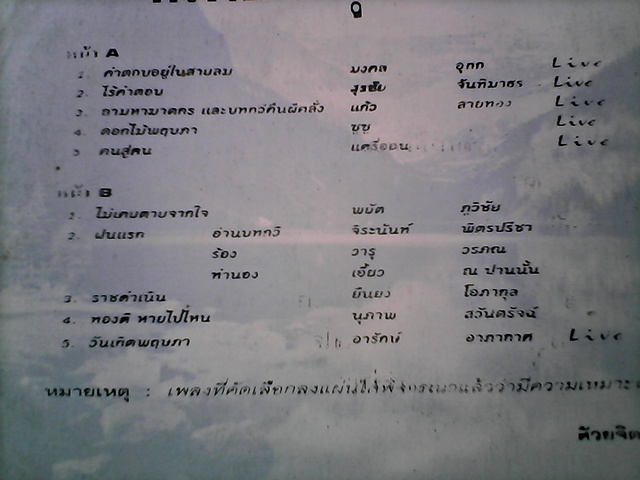 หน้า A
1. คำตอบอยู่ในสายลม มงคล อุทก Live
2. ไร้คำตอบ สุรชัย จันทิมาธร Live
3. ถามหามาตคร และบทกวีคืนผีคลั่ง แก้ว ลายทอง Live
4. ดอกไม้พฤษภา ซูซู Live
5 คนสู่คน Live
หน้า B
1. ไม่เคยตายจากใจ พนัด ภูวิชัย
2. ฝนแรก อ่านบทกวี จิระนันท์ พิตรปรีชา
ร้อง วารุ วรภณ
ทำนอง เอี้ยว ณ ปานนั้น
3. ราชดำเนิน ยืนยง โอภากุล
4. ทองดี หายไปไหน นุภาพ สวันตรัจฉ์
5. วันเกิดพฤษภา อารักษ์ อาภากาศ Live
หมายเหตุ : เพลงที่คัดเลือกลงแผ่น แล้วว่ามีความเหมาะ
ด้วยจิต